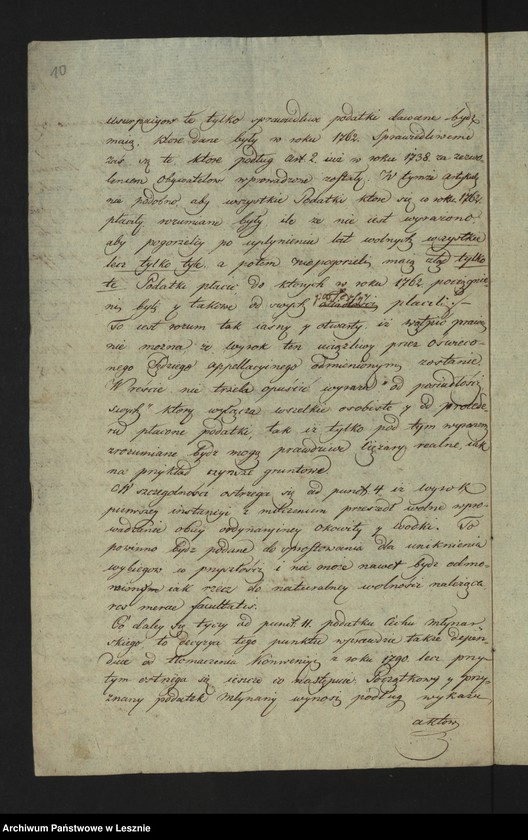 10
te tylko sprawiedliwe podatki dawane bydź
maią, które dane były w roku 1762. Sprawiedliwemi
zaś są te, które podług Art. 2. iuż w roku 1738 za zezwo-
leniem Obywatelow wprowadzone zostały. W tymże artykule
na podobno aby wszystkie Podatki które się w roku 1762
placiły rozumiane były ile że nie iest wyrażono
aby pogorzelcy po upłynieniu lat wolnych wszystkie
lecz tylko tyle, a potem niepogorzeli maią tylko
te Podatki płacić do których w roku 1762 pociągnie-
ni byli y takowe od swych płacili
To iest rozum tak iasny y otwarty, iż wątpić prawie
nie można że wyrok ten uciążliwy przez Oswieco-
nego Sędziego appellacyinego odmienionym zostanie.
W reście nie trzeba opuścić wyrazu "od posiadłości
swych" który wyłącza wszelkie osobiste y od procede-
ru płacone podatki, tak iż tylko pod tym wyrazem
zrozumiane bydź mogą prawdziwe ciężary realne iak
na przykład czynsze gruntowe.
W szczegolności ostrzega się ad punct. 4 iż wyrok
pierwszey instancyi z milczeniem przeszedł wolne wpro-
wadzanie obcey ordynaryiney Okowity y wodki. To
powinno bydź podane do sprostowania dla uniknienia
wybiegow w przyszłości i nie może nawet bydź odmo-
wionym iak rzecz do naturalney wolności należąca
res merae facultatis.
Co daley się tyczy ad punct. 11. podatku Cechu Młynar-
skiego to decyzya tego punktu wprawdzie także depen-
duie od tłomaczenia Konwencyi z roku 1790. lecz przy
tym ostrzega się ieszcze co następuie. Początkowy y przy-
znany podatek Młynarzy wynosi podług wykazu
aktow
Archiwum Państwowe w Lesznie